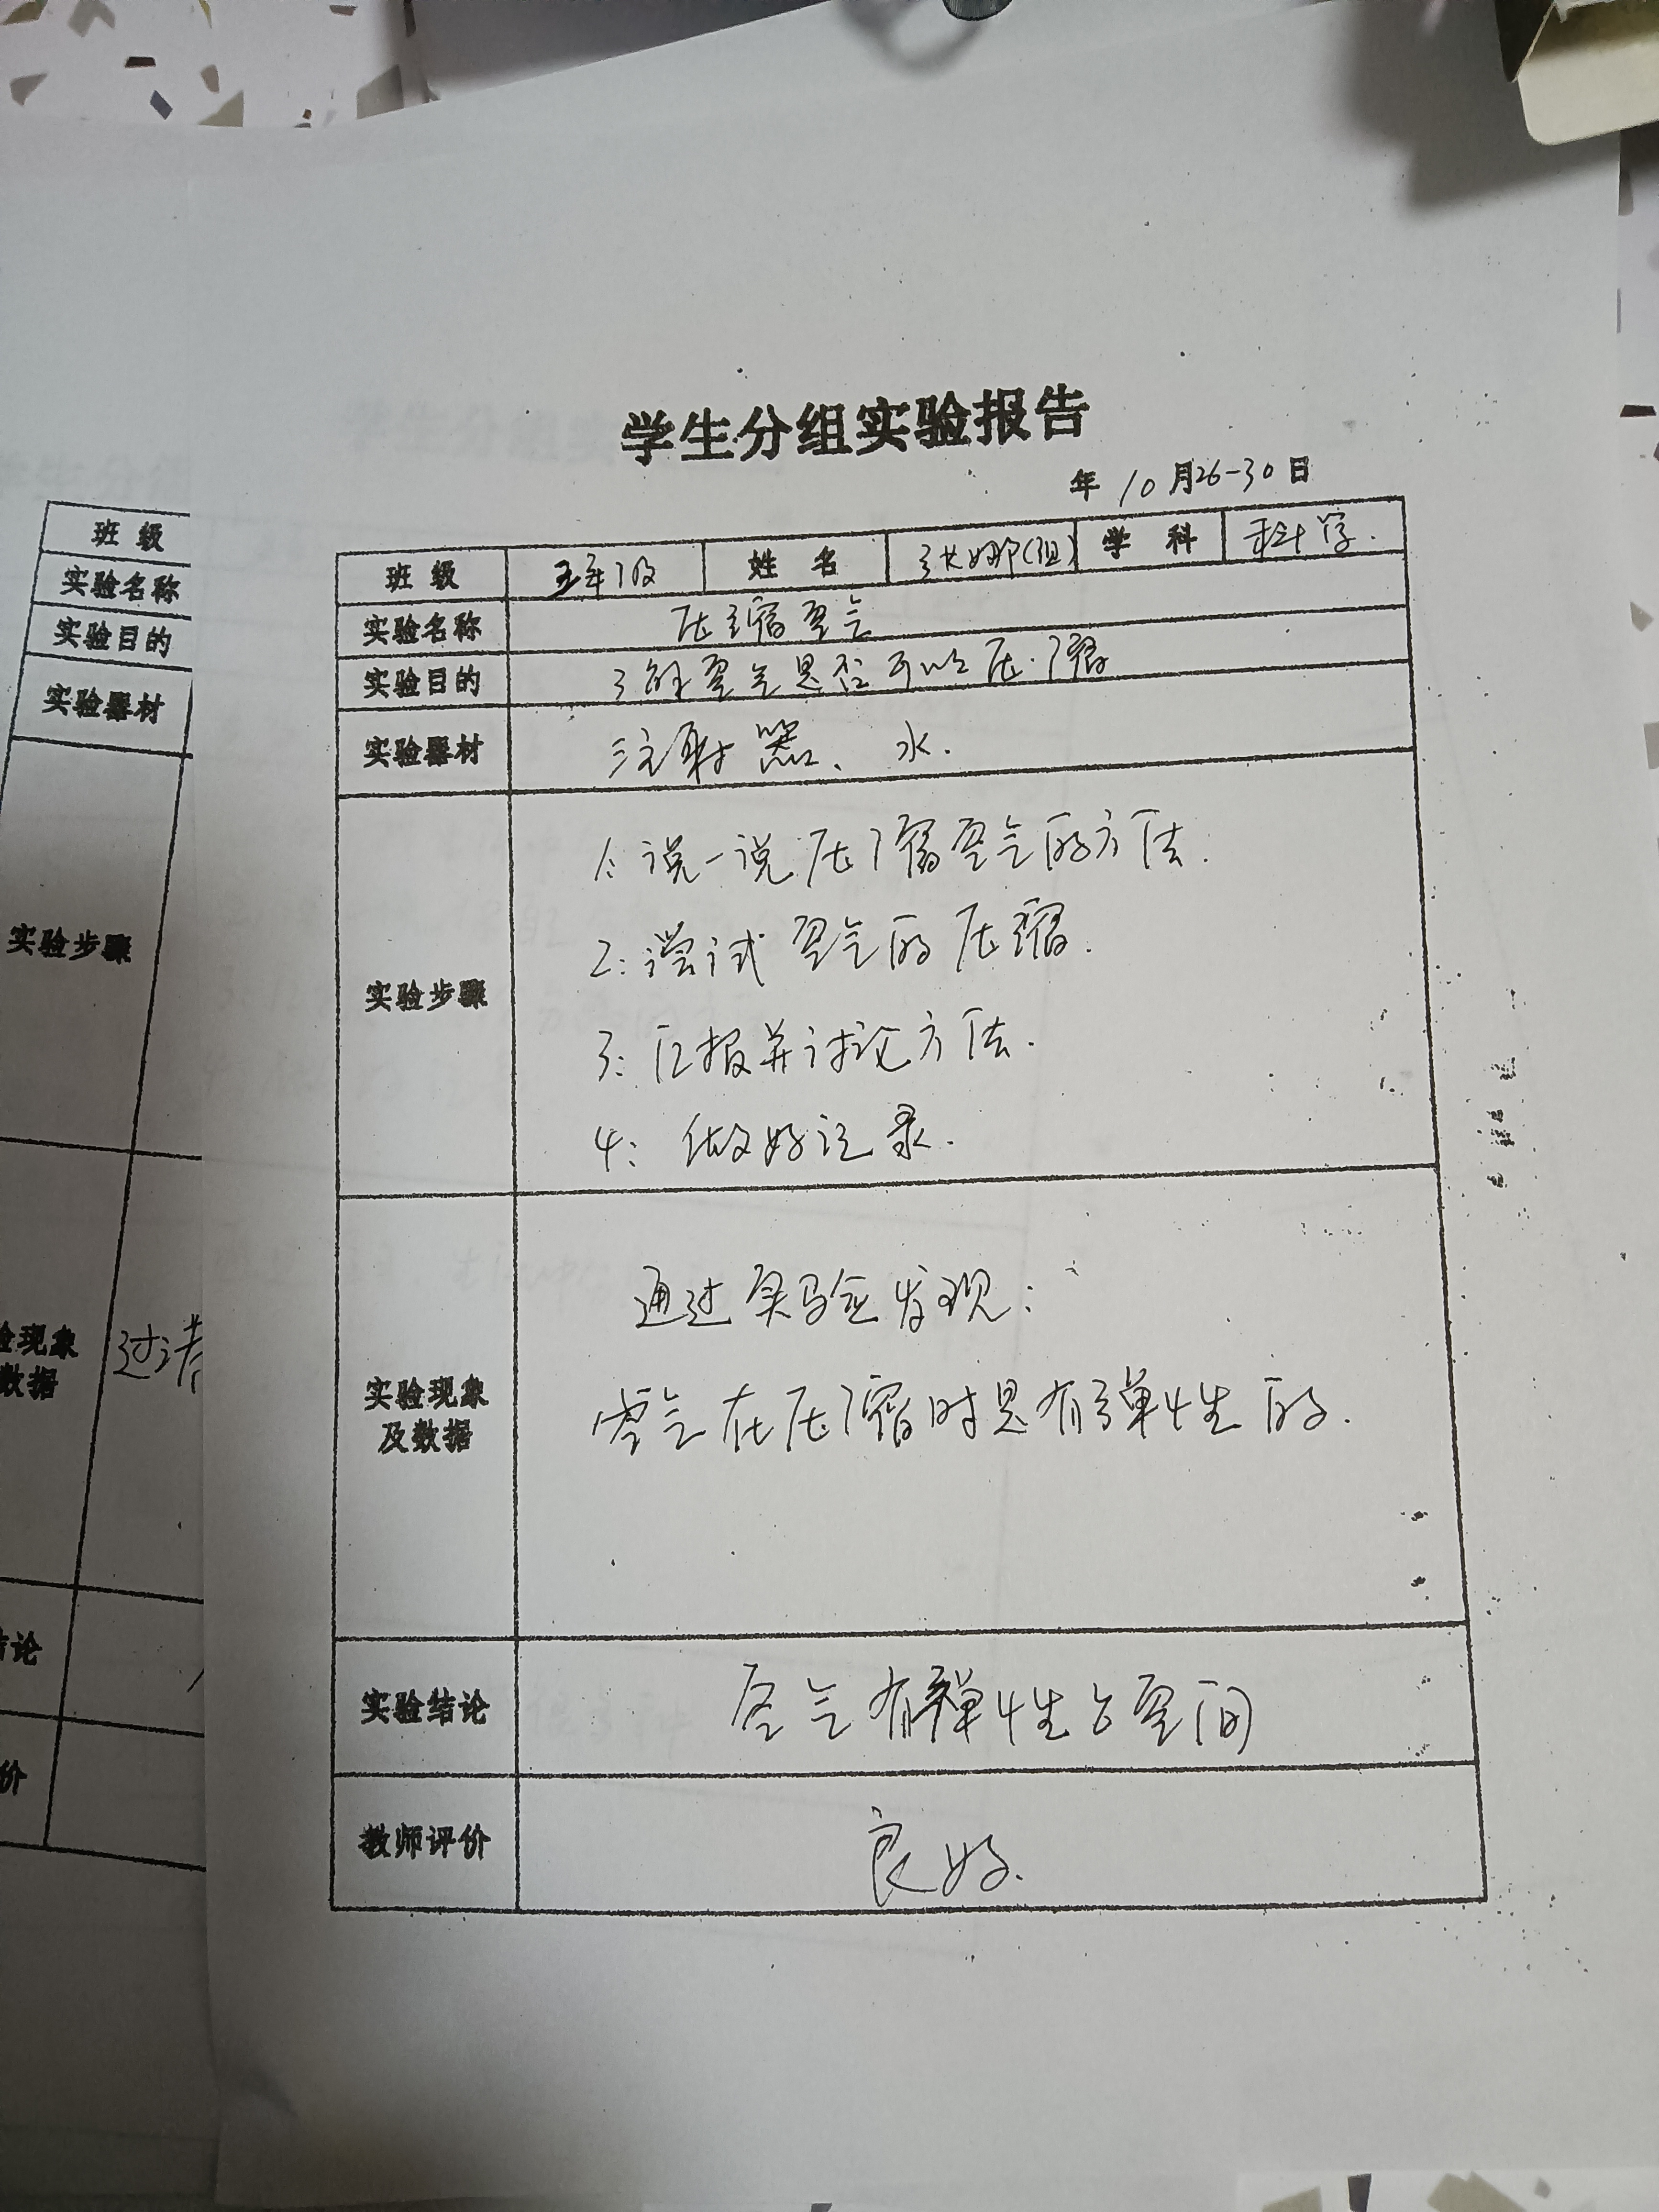 学生分组实验报告
年 10月26-30日
班级 五年级 姓名 洪娜(组) 学科 科学.
实验名称 压缩空气
实验目的 了解空气是否可以压缩
实验器材 注射器、水.
实验步骤
1: 说一说压缩空气的方法.
2: 尝试空气的压缩.
3: 汇报并讨论方法.
4: 做好记录.
实验现象
及数据
通过实验发现:
空气在压缩时是有弹性的.
实验结论 空气有弹性占空间
教师评价 良好.
班级
实验名称
实验目的
实验器材
实验步骤
验现象
数据
过
结论
价